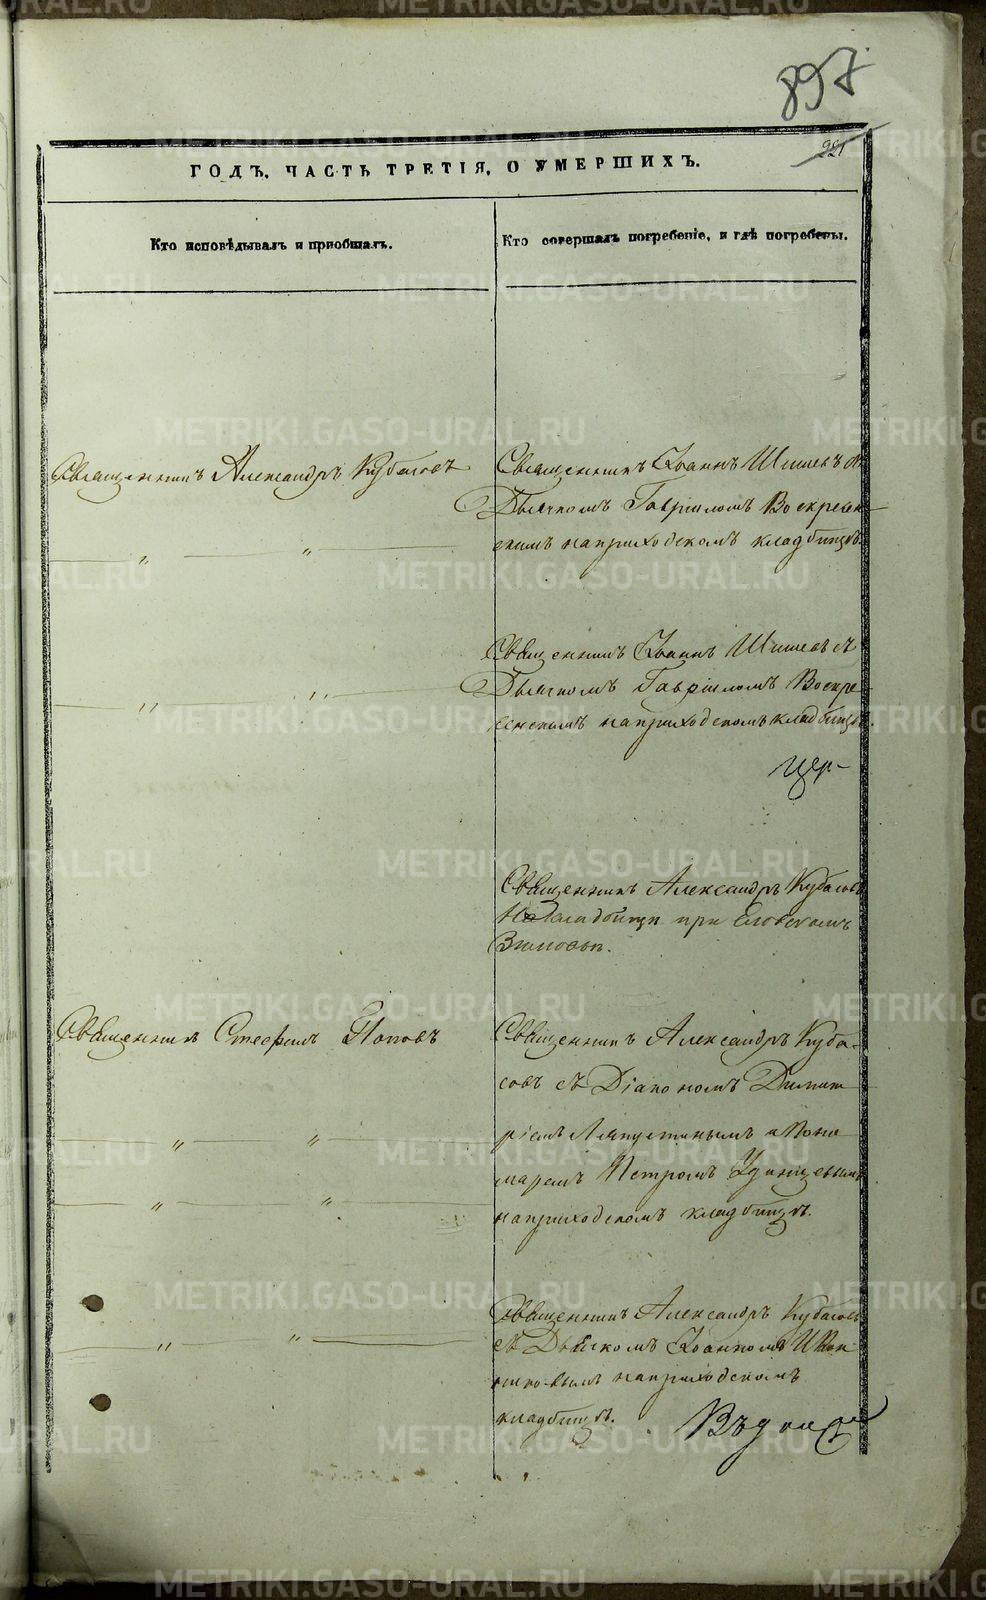 897
221
ГОДЪ, ЧАСТЬ ТРЕТІЯ, О УМЕРШИХЪ.
Кто исповѣдывалъ и приобщалъ.
Кто совершалъ погребеніе, и гдѣ погребены.
Священникъ Александръ Кубасовъ
Священникъ Іоаннъ Шишевъ съ
Дьячкомъ Гавріиломъ Воскресен
скимъ на приходскомъ кладбищѣ.
„ „
Священникъ Іоаннъ Шишевъ съ
Дьячкомъ Гавріиломъ Воскре-
сенскимъ на приходскомъ кладбищѣ.
„ „
цер-
Священникъ Александръ Кубасовъ
На кладбищи при Еловскомъ
Зимовьи.
Священникъ Стефанъ Поповъ
Священникъ Александръ Куба-
совъ съ Діакономъ Димит
ріемъ Ляпустинымъ и Поно
маремъ Петромъ Удинцевымъ
на приходскомъ кладбищѣ.
„ „
„ „
Священникъ Александръ Кубасовъ
съ Дьячкомъ Іоанномъ
на приходскомъ
кладбищѣ.
„ „
METRIKI.GASO-URAL.RU